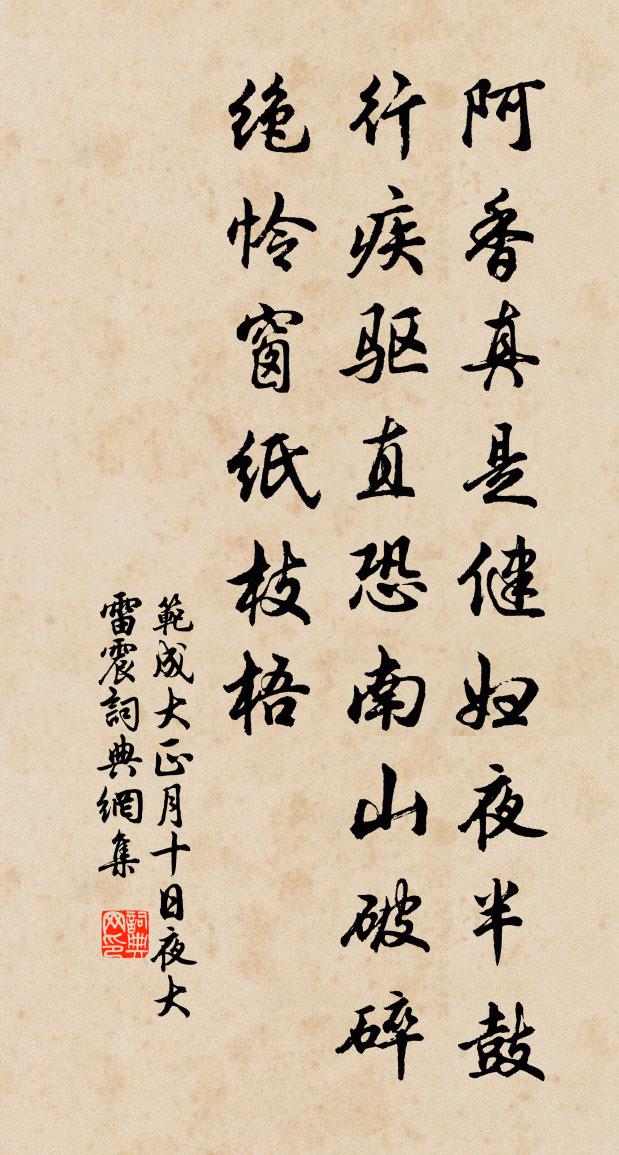 阿香真是健妇夜半鼓
行疾驱直恐南山破碎
绝怜窗纸枝梧
範成大正月十日夜大
雷震詞典網集
詞典
网印